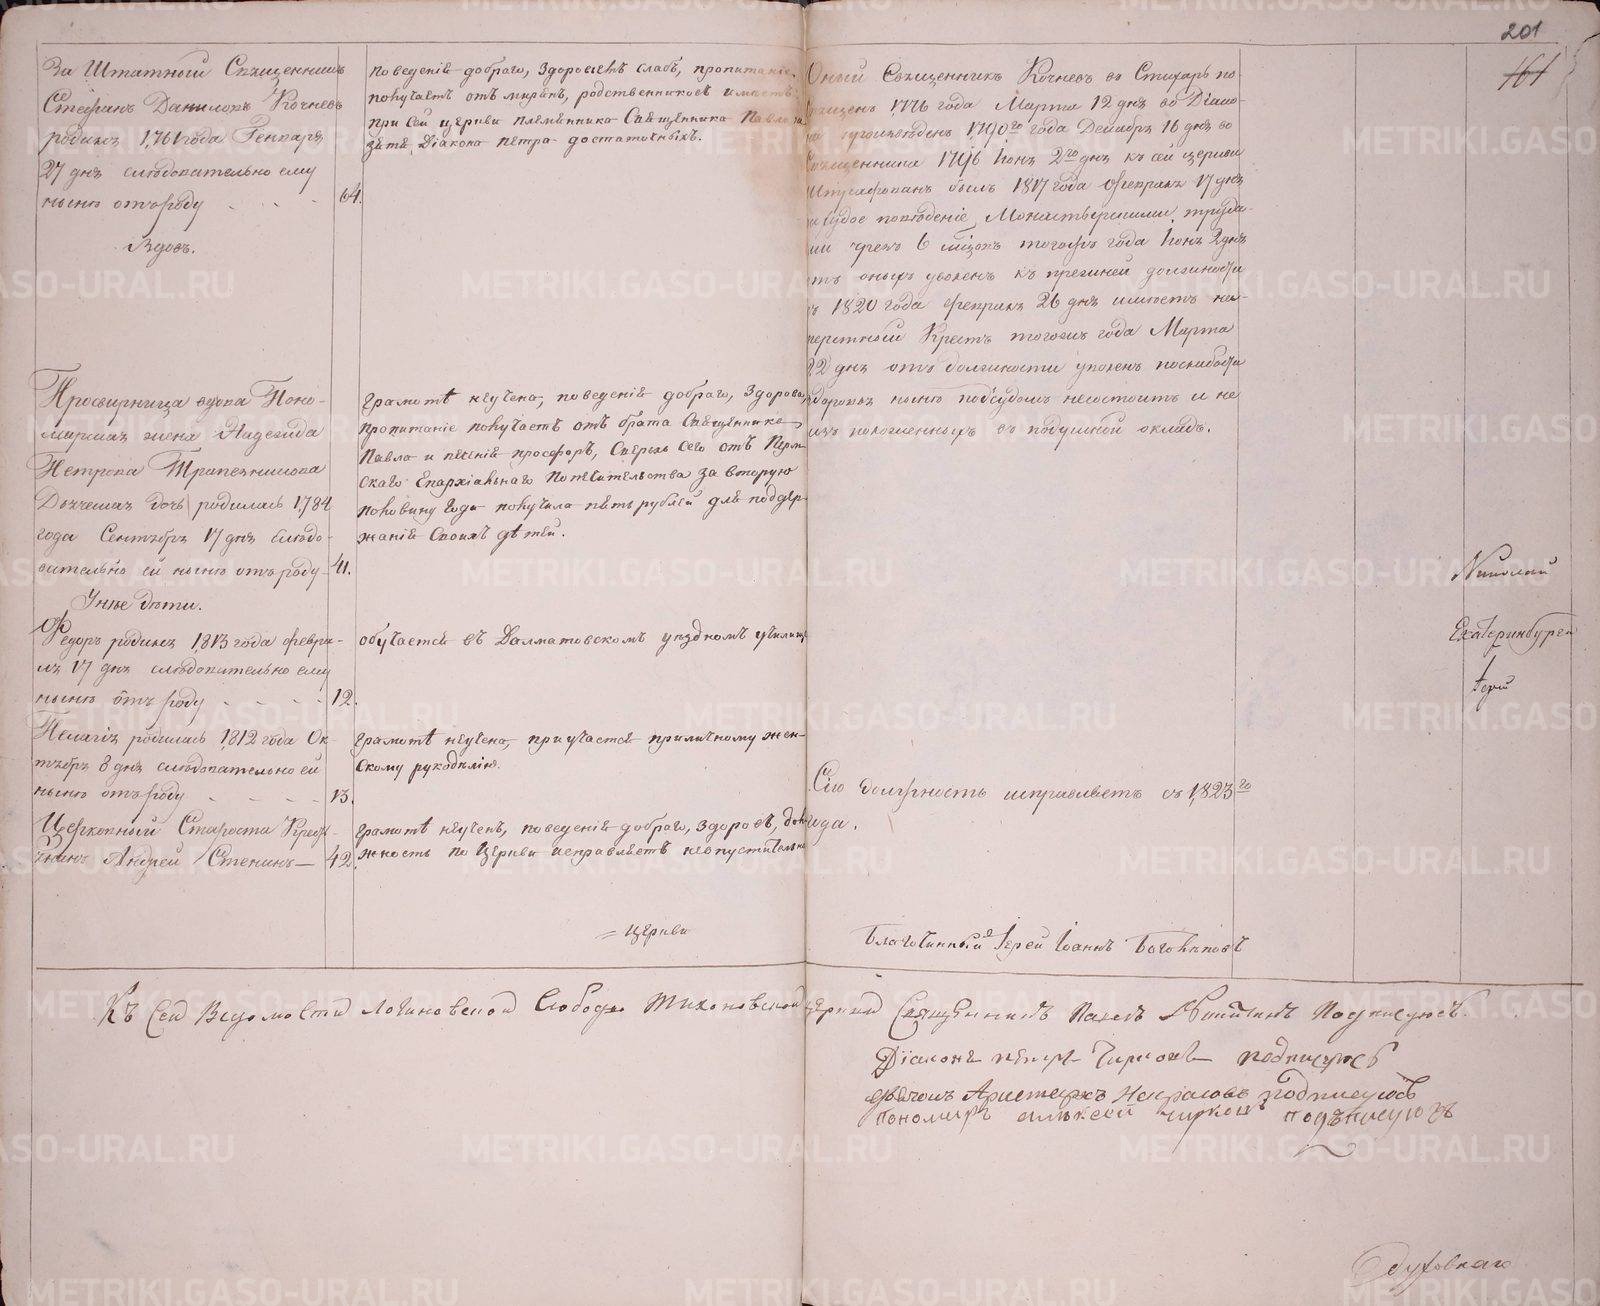 201
161
За Штатный Священникъ
Стефанъ Даниловъ Кочневъ
родился 1761 года Генваря
27 дня следовательно ему
ныне отъ роду 64.
Вдовъ.
поведенія добраго, здоровьемъ слабъ, пропитаніе
получаетъ отъ мирянъ, родственниковъ имеетъ
при сей церкви племянника Священника Павла
зятя Діакона Петра достаточныхъ.
Оный Священникъ Кочневъ во Стихарь по-
священъ 1776 года Марта 12 дня во Діако-
на произведенъ 1790го года Декабря 16 дня во
Священника 1796 Іюня 2го дня къ сей церкви
былъ 1817 года февраля 17 дня
за худое поведеніе Монастырскими труда-
ми чрезъ 6 тогожъ года Іюня 2 дня
отъ оныхъ уволенъ къ прежней должности
1820 года февраля 26 дня имеетъ на-
перстный Крестъ тогожъ года Марта
22 дня отъ должности уволенъ послабости
здоровья ныне подсудомъ несостоитъ и не
изъ положенныхъ въ подушной окладъ.
Просвирница вдова Поно-
марская жена Надежда
Петрова Трапезникова
дочь родилась 1784
года Сентября 17 дня следо-
вательно ей ныне отъ роду 41.
грамотѣ неучена, поведенія добраго, здорова,
пропитаніе получаетъ отъ брата Священника
Павла и печенія просфоръ, Сверхъ сего отъ Перм-
скаго Епархіальнаго Попечительства за вторую
половину года получила пять рублей для поддер-
жанія своихъ дѣтей.
У нее дети.
Федоръ родился 1813 года февра-
ля 17 дня следовательно ему
ныне отъ роду 12.
обучается въ Далматовскомъ уездномъ училище
Пелагія родилась 1812 года Ок-
тября 8 дня следовательно ей
ныне отъ роду 13.
грамотѣ неучена, приучается приличному жен-
скому рукоделію.
Церковный Староста Крестья-
нинъ Андрей Стенинъ 42.
грамотѣ неученъ, поведенія добраго, здоровъ, дол-
жность по Церкви исправляетъ неопустительно
Сію должность исправляетъ съ 1823го
года.
Николай
Екатеринбурга
Іерей
= церкви
Благочинный Іерей Іоаннъ Боголеповъ
Къ Сей Ведомости Логиновской Слободы Тихоновской церкви Священникъ Павелъ Никитинъ Подписуюсь.
Діаконъ Петръ Чирковъ подписуюсь
Дьячокъ Аристархъ Некрасовъ подписуюсь
Пономарь алексей чирковъ подписуюсь
Духовнаго
METRIKI.GASO-URAL.RU